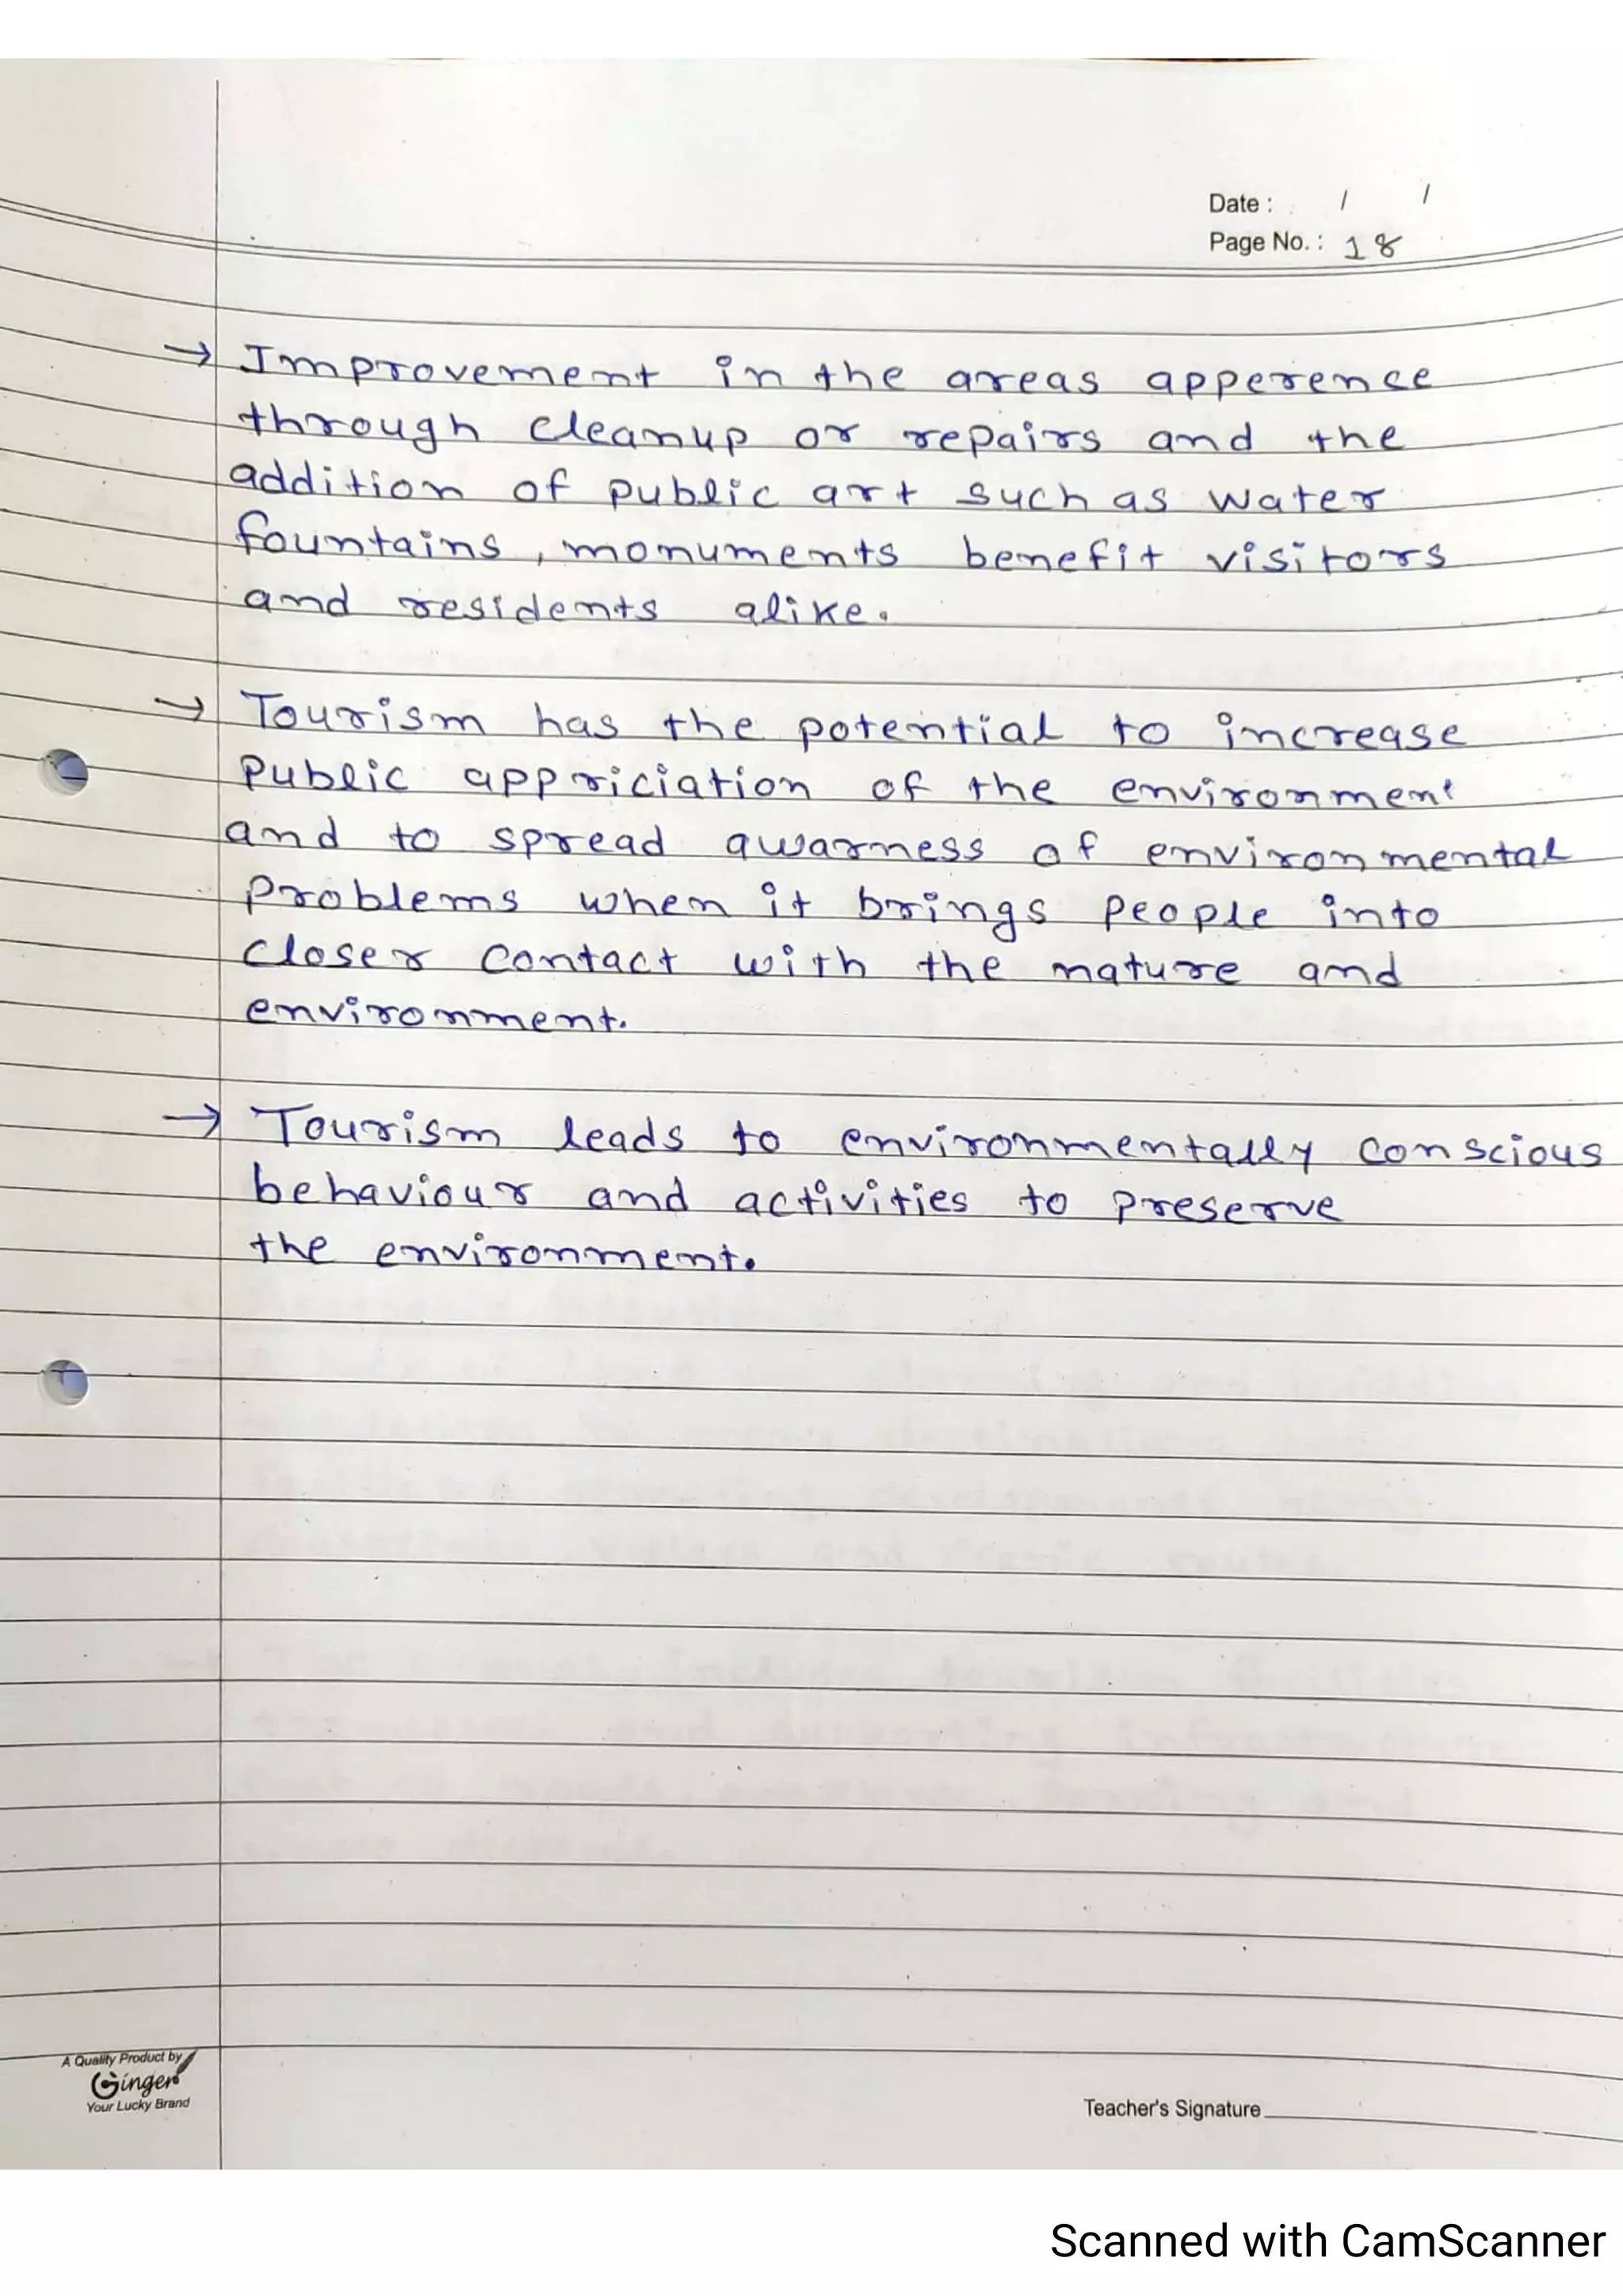 Date : / /
Page No. : 18
→ Improvement in the areas apperence
through cleanup or repairs and the
addition of public art such as water
fountains, monuments benefit visitors
and residents alike.
→ Tourism has the potential to increase
Public appriciation of the environment
and to spread awarness of environmental
problems when it brings people into
closer contact with the nature and
environment.
→ Tourism leads to environmentally conscious
behaviour and activities to preserve
the environment.
A Quality Product by
Ginger
Your Lucky Brand
Teacher's Signature
Scanned with CamScanner